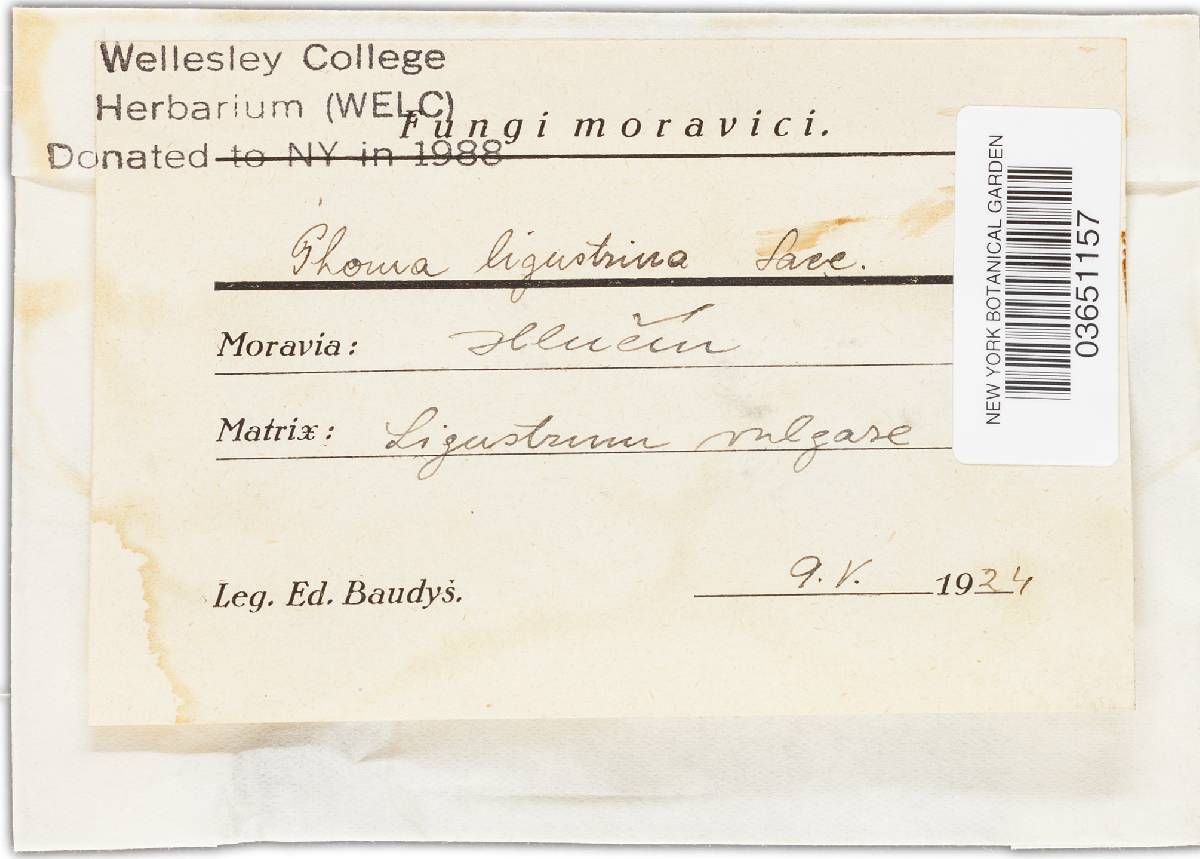 Wellesley College
Herbarium (WELC)
Donated to NY in 1988
Fungi moravici.
Phoma ligustrina Sacc.
Moravia: Hlučín
Matrix: Ligustrum vulgare
Leg. Ed. Baudyš. 9. V. 1924
NEW YORK BOTANICAL GARDEN
03651157